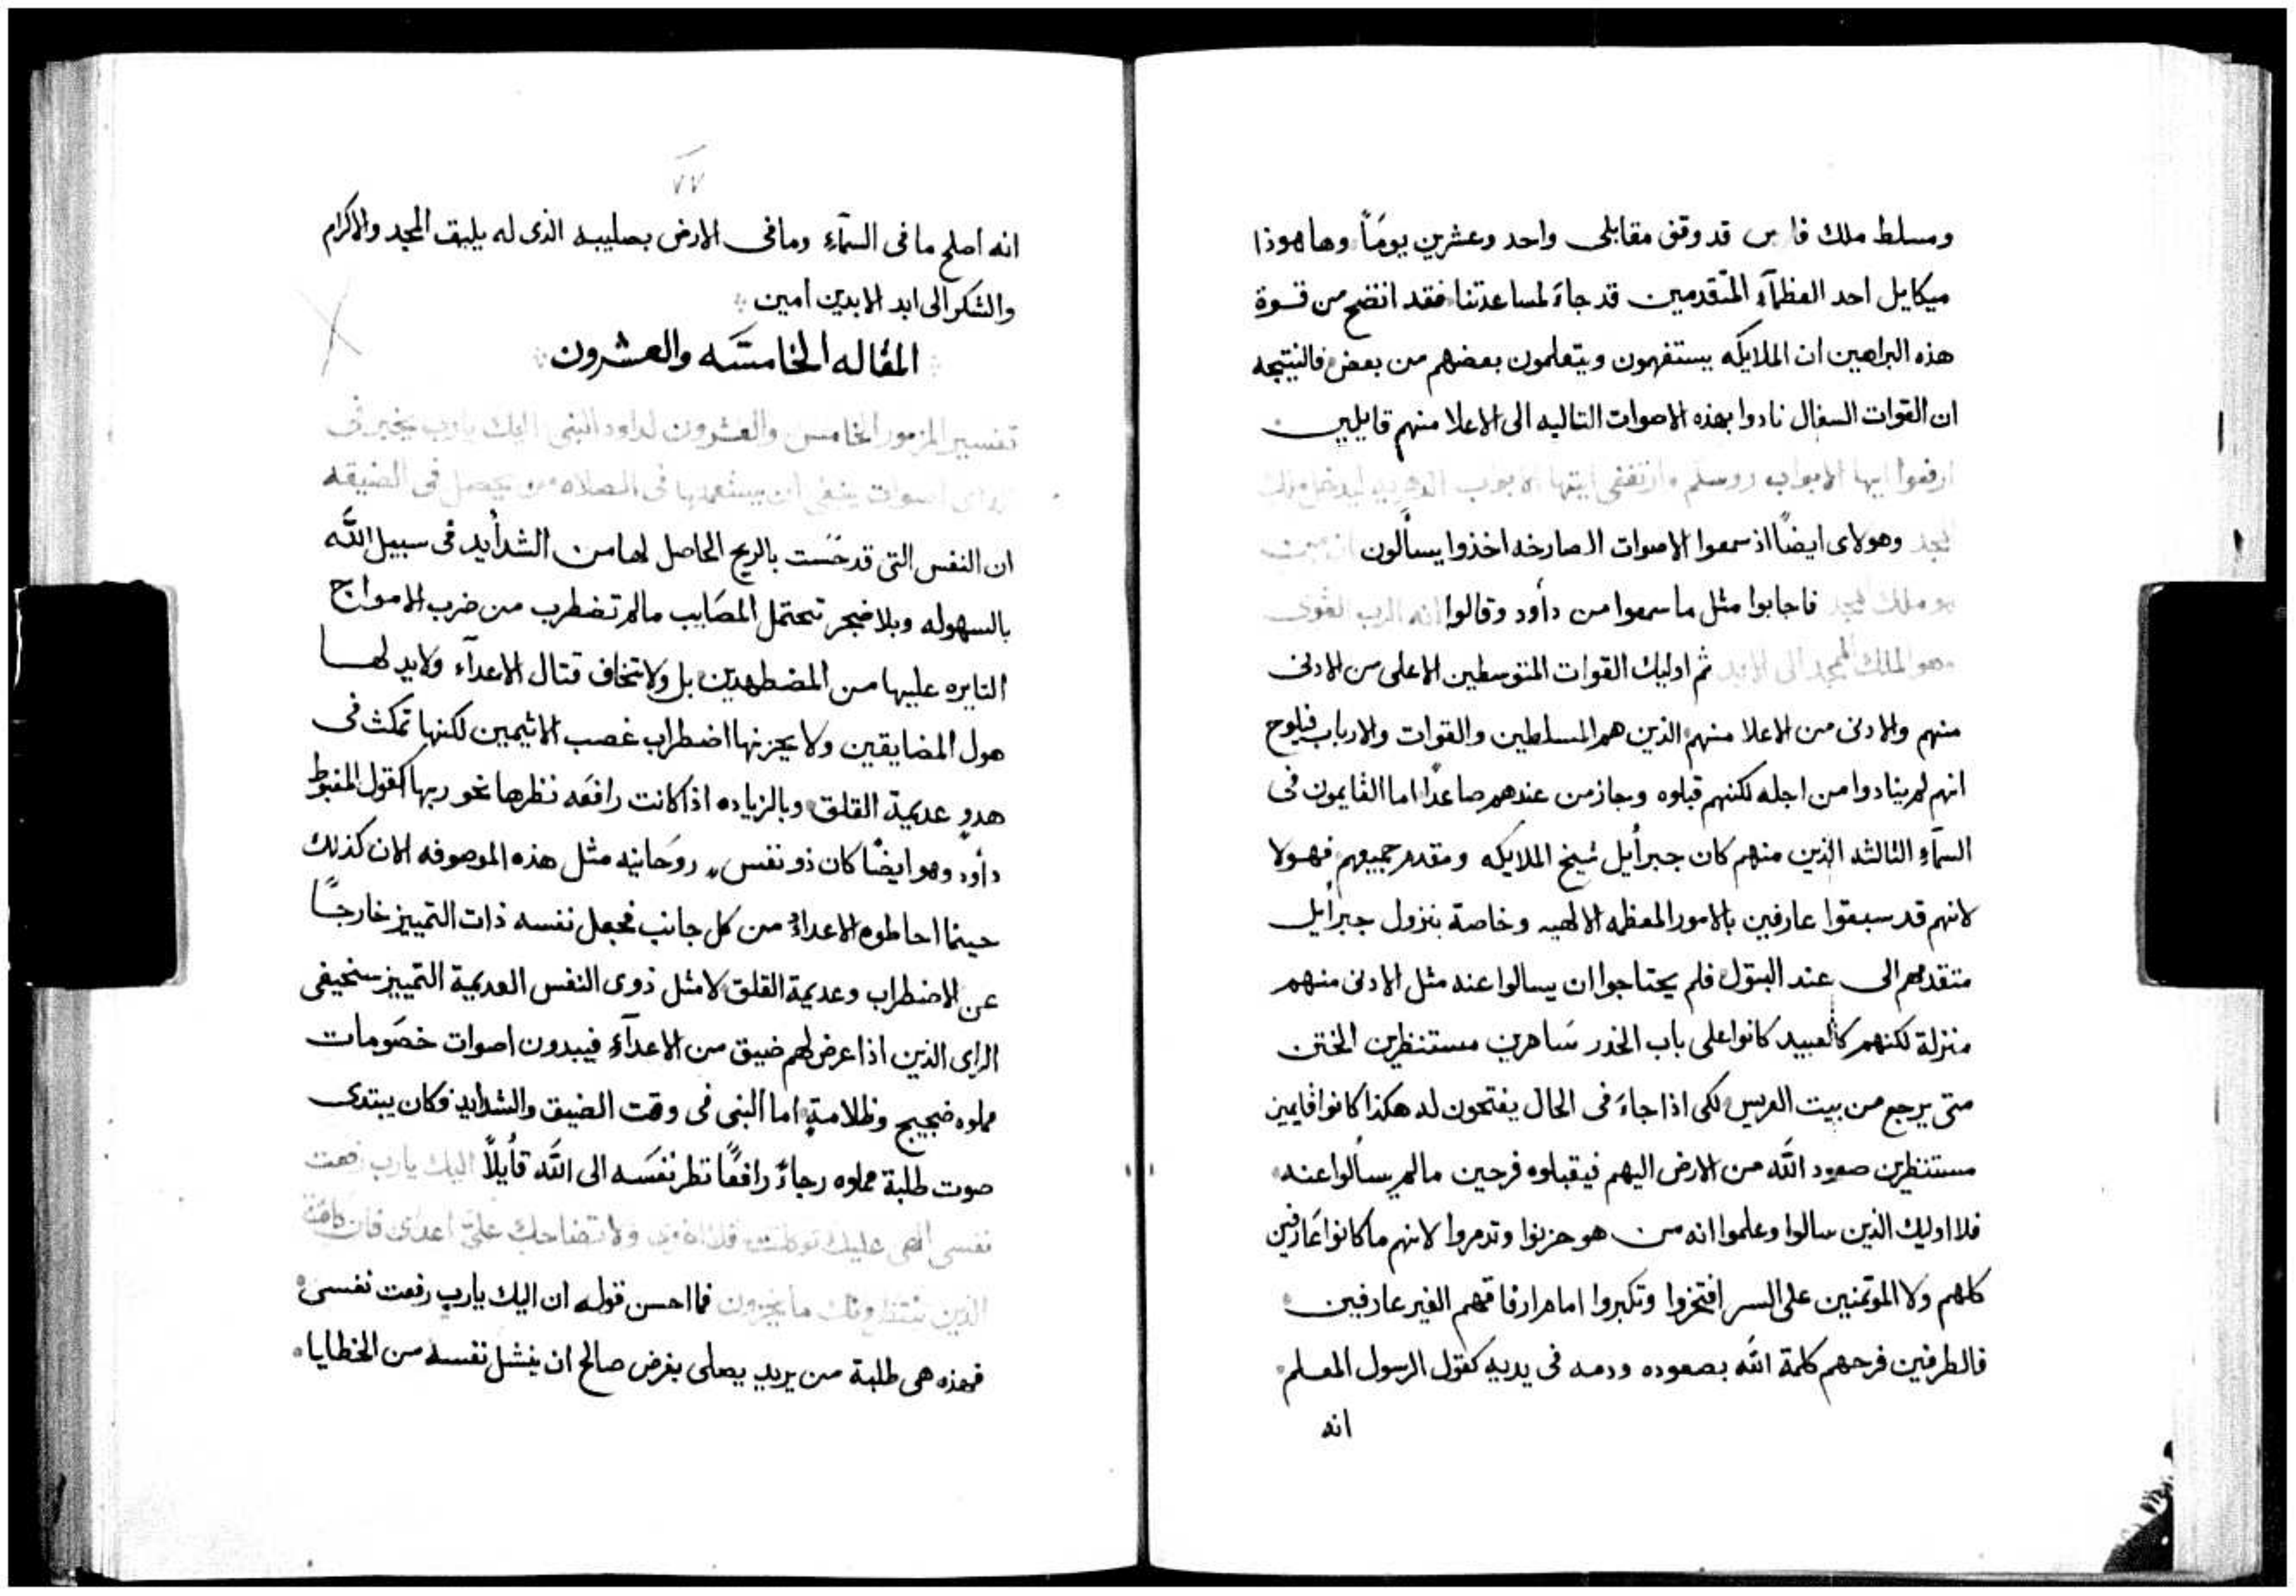 ومسلط ملك فارس قد وقف مقابلى واحد وعشرين يومًا وها هوذا
ميكايل احد العظمآء المتقدمين قد جاءَ لمساعدتنا فقد اتضح من قوة
هذه البراهين ان الملايكه يستفهمون ويتعلمون بعضهم من بعض فالنتيجه
ان القوات السفال نادوا بهذه الاصوات التاليه الى الاعلا منهم قايلين
ارفعوا ايها الابواب روسكم وارتفعى ايتها الابواب الدهريه ليدخل ملك
المجد وهولاى ايضًا اذ سمعوا الاصوات الصارخه اخذوا يسألون
هو ملك المجد فاجابوا مثل ما سمعوا من دأود وقالوا انه الرب القوى
وهو الملك الممجد الى الابد ثم اوليك القوات المتوسطين الاعلى من الادنى
منهم والادنى من الاعلا منهم الذين هم المسلطين والقوات والارباب فيلوح
انهم لم ينادوا من اجله لكنهم قبلوه وجاز من عندهم صاعدًا اما القايمون فى
السمآء الثالثه الذين منهم كان جبرأيل شيخ الملايكه ومقدم جميعهم فهولا
لانهم قد سبقوا عارفين بالامور المعظمه الالهيه وخاصة بنزول جبرأيل
متقدمهم الى عند البتول فلم يحتاجوا ان يسالوا عنه مثل الادنى منهم
منزلة لكنهم كالعبيد كانوا على باب الخدر سَاهرين مستنظرين الختن
متى يرجع من بيت العريس لكى اذا جاءَ فى الحال يفتحون له هكذا كانوا قايمين
مستنظرين صعود اللَّه من الارض اليهم فيقبلوه فرحين ما لم يسألوا عنه
فلا اوليك الذين سالوا وعلموا انه من هو حزنوا وتدمروا لانهم ما كانوا عَارفين
كلهم ولا الموتمنين على السر افتخروا وتكبروا امام ارفاقهم الغير عارفين
فالطرفين فرحهم كلمة اللَّه بصعوده ودمه فى يديه كقول الرسول المعلم
انه
٧٧
انه اصلح ما فى السمآءِ وما فى الارض بصليبه الذى له يليق المجد والاكرام
والشكر الى ابد الابدين امين
المقاله الخامسَه والعشرون
تفسير المزمور الخامس والعشرون لداود النبى اليك يارب يخبر فى
اصوات ينبغى ان يستعمدها فى الصلاه من يحصل فى الضيقه
ان النفس التى قد حَسَت بالربح الحاصل لها من الشدأيد فى سبيل اللَّه
بالسهوله وبلا ضجر تحتمل المصَايب ما لم تضطرب من ضرب الامواج
الثايره عليها من المضطهدين بل ولا تخاف قتال الاعدآء ولا يد لها
هول المضايقين ولا يحزنها اضطراب غصب الاثيمين لكنها تمكث فى
هدوٍ عديمة القلق وبالزياده اذا كانت رافعَه نظرها نحو ربها كقول المغبوط
دأود وهو ايضًا كان ذو نفس روحَانيه مثل هذه الموصوفه الان كذلك
حينما احاطوه الاعداءُ من كل جانب فجعل نفسه ذات التمييز خارجًا
عن الاضطراب وعديمة القلق لا مثل ذوى النفس العديمية التمييز سخيفى
الراى الذين اذا عرض لهم ضيق من الاعدآءِ فيبدون اصوات خصَومات
مملوه ضجيج وظلامةٍ اما النبى فى وقت الضيق والشدايد فكان يبتدى
صوت طلبة مملوه رجاءً رافعًا نظر نفسَه الى اللَّه قأيلًا اليك يارب رفعت
نفسى الهى عليك توكلت فلا اخزى ولا تضاحك علىّ اعداى فان كافة
الذين ينتظرونك ما يخزون فما احسن قوله ان اليك يارب رفعت نفسى
فهذه هى طلبة من يريد يصلى بغرض صالح ان ينشل نفسه من الخطايا